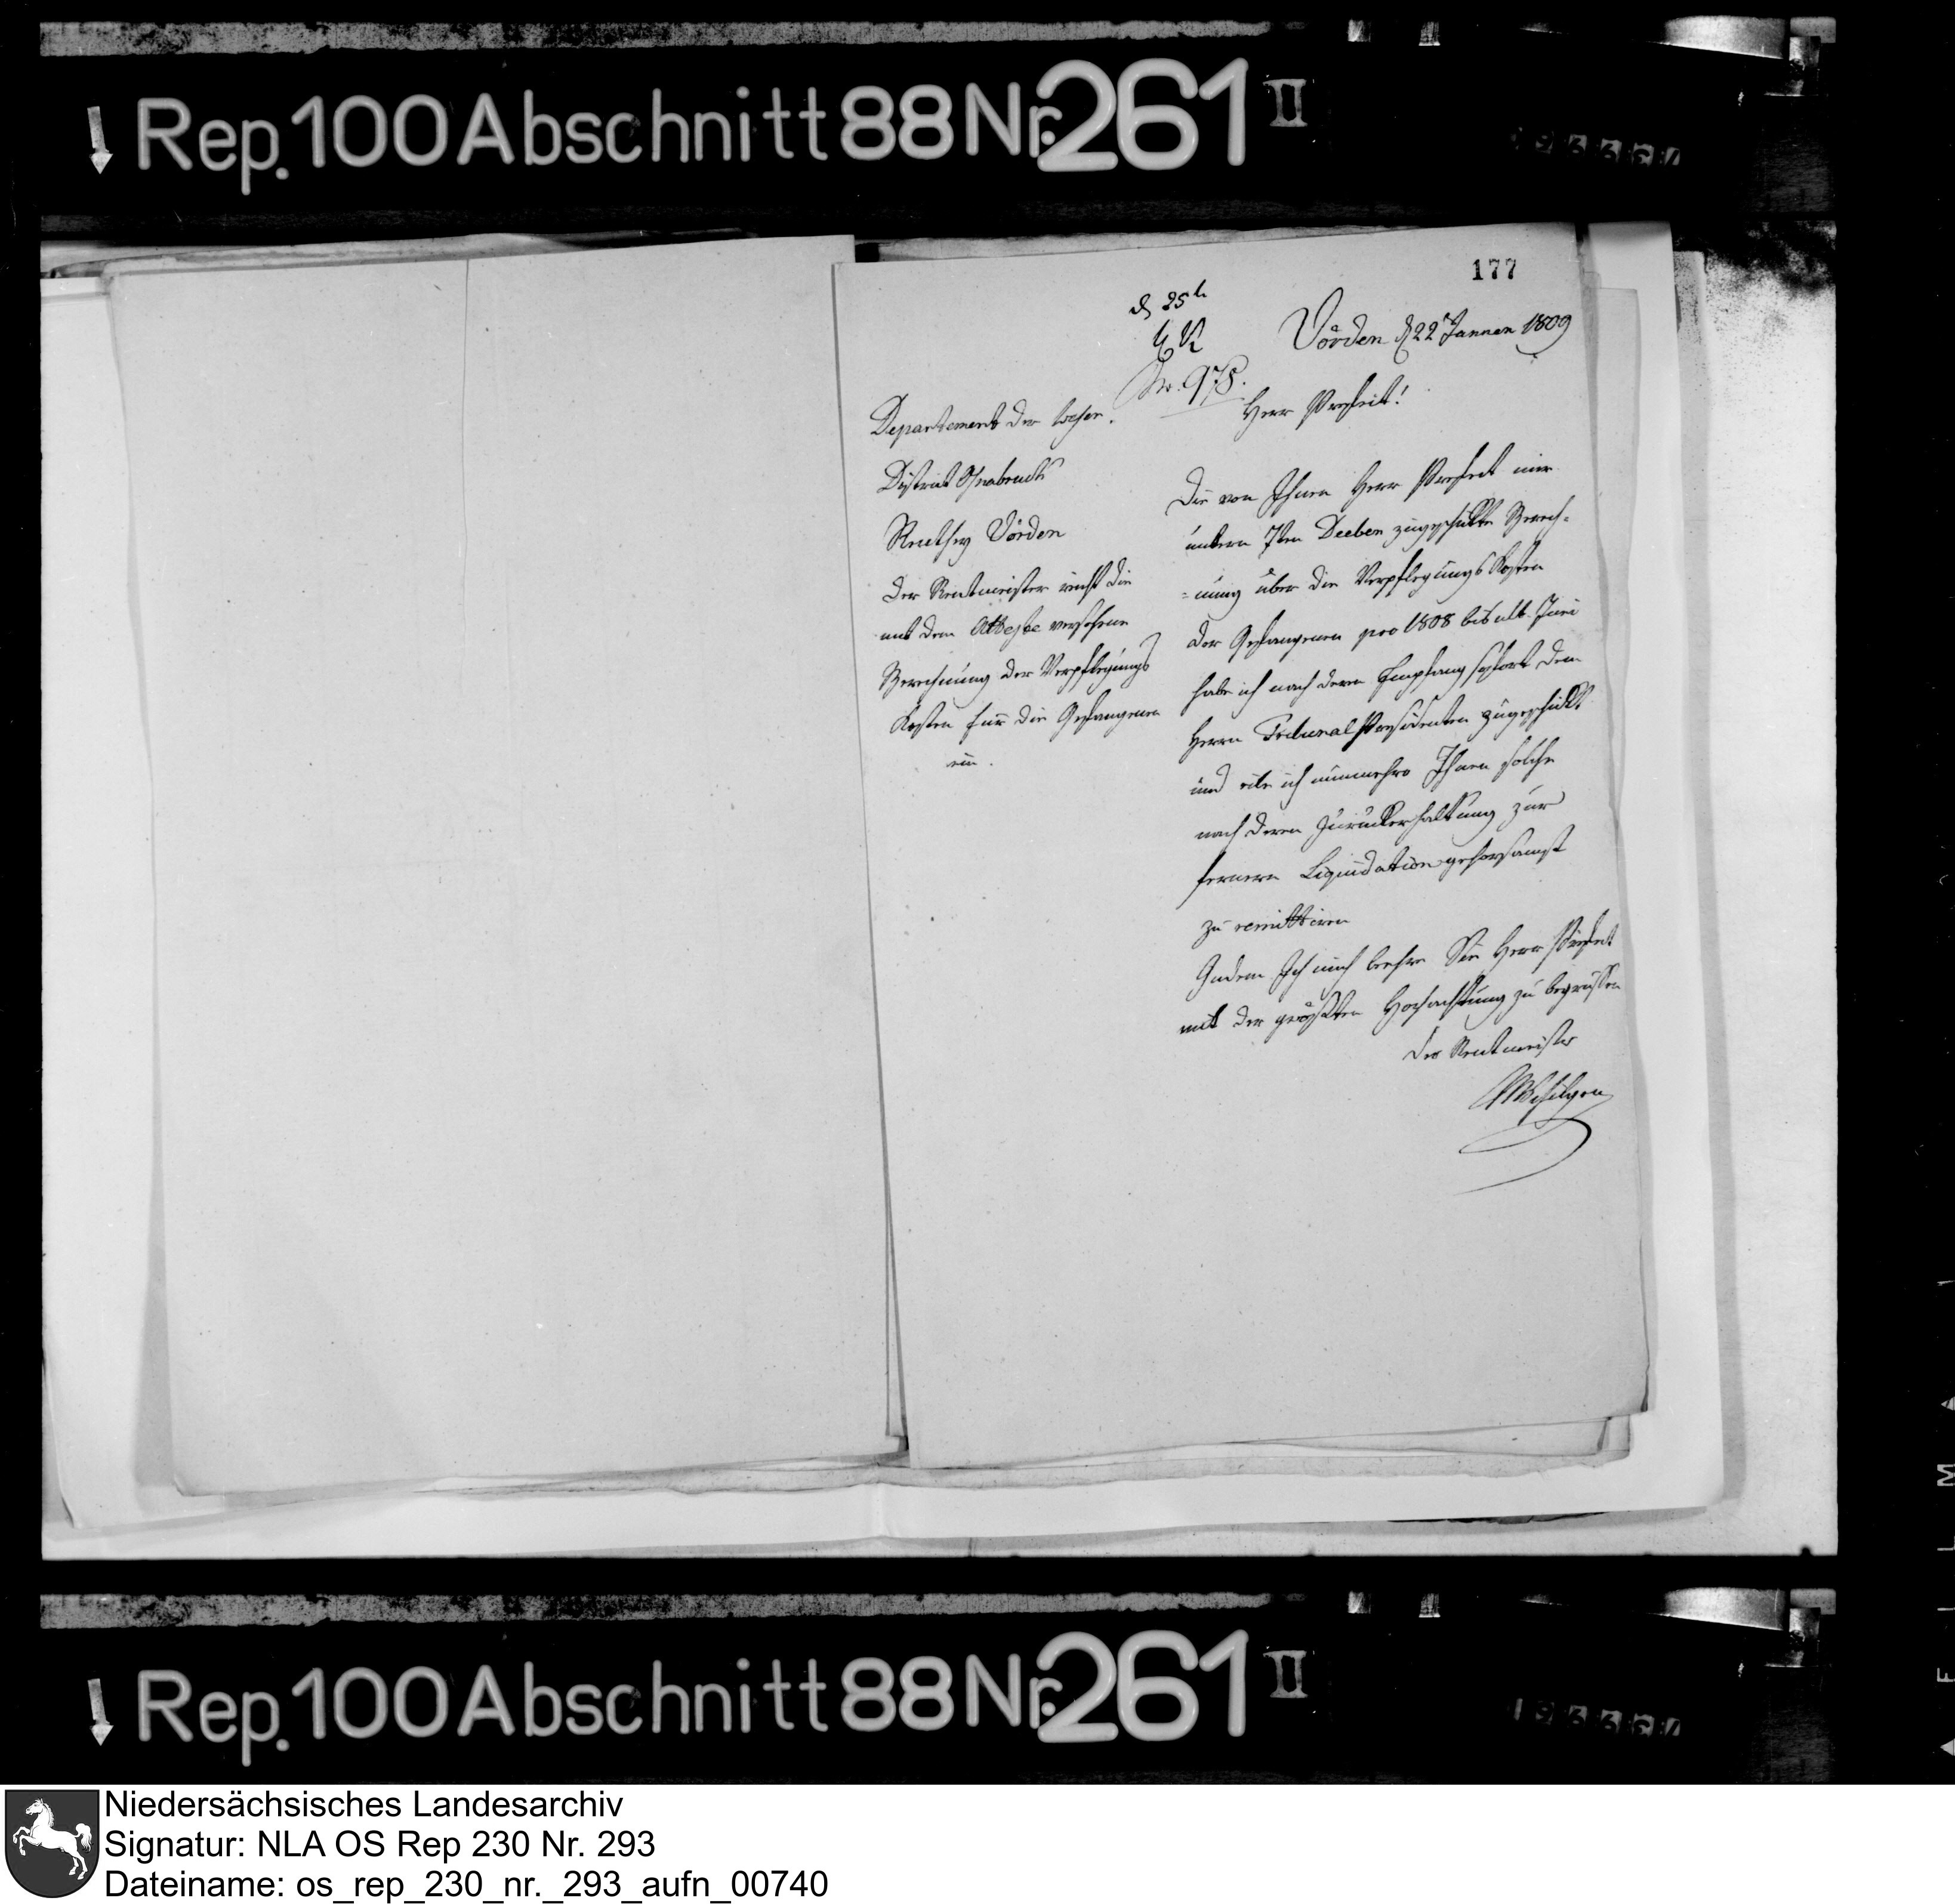 Rep. 100 Abschnitt 88 Nr. 261 II
177
d 25t
Nr. 978.
Vörden d 22t Januar 1809
Herr Praefect!
Departement der Weser.
District Osnabruck
Renthey Vörden
Der Rentmeister reicht die
mit dem Atteste versehene
Berechnung der Verpflegungs
Kosten für die Gefangenen
ein.
Die von Ihnen Herr Praefect mir
unterm 7ten Decbr zugeschickte Berech=
=nung über die Verpflegungs Kosten
der Gefangenen pro 1808 bis ult. Juni
habe ich nach deren Empfang sofort dem
Herrn Tribunal Praesidenten zugeschickt
und eile ich nunmehro Ihnen solche
nach deren Zurückerhaltung zur
fernern Liquidation gehorsamst
zu remittiren
Indem Ich mich beehre Sie Herr Praefect
mit der größten Hochachtung zu begrüssen
Der Rentmeister
Rep. 100 Abschnitt 88 Nr. 261 II
Niedersächsisches Landesarchiv
Signatur: NLA OS Rep 230 Nr. 293
Dateiname: os_rep_230_nr._293_aufn_00740